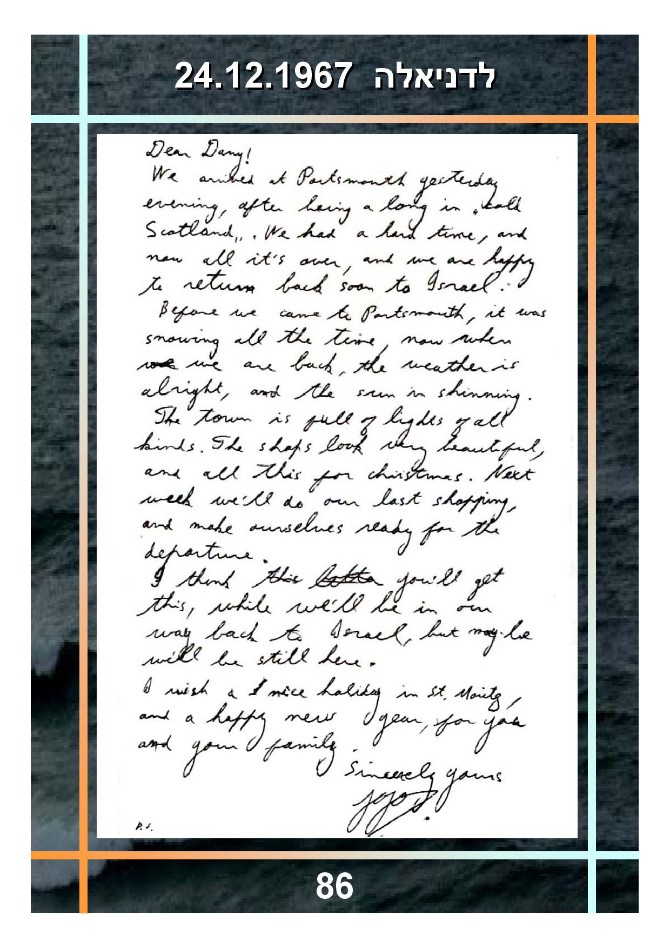 לדניאלה 24.12.1967
Dear Dany!
We arrived at Portsmouth yesterday
evening, after being a long in „cold
Scotland„. We had a hard time, and
now all it's over, and we are happy
to return back soon to Israel.
Before we came to Portsmouth, it was
snowing all the time, now when
we we are back, the weather is
alright, and the sun in shinning.
The town is full of lights of all
kinds. The shops look very beautiful,
and all this for christmas. Next
week we'll do our last shopping,
and make ourselves ready for the
departure.
I think this letter you'll get
this, while we'll be in our
way back to Israel, but may-be
will be still here.
I wish a nice holiday in St. Moritz,
and a happy new year, for you
and your family.
Sincerely yours
JOJO
P.S.
86